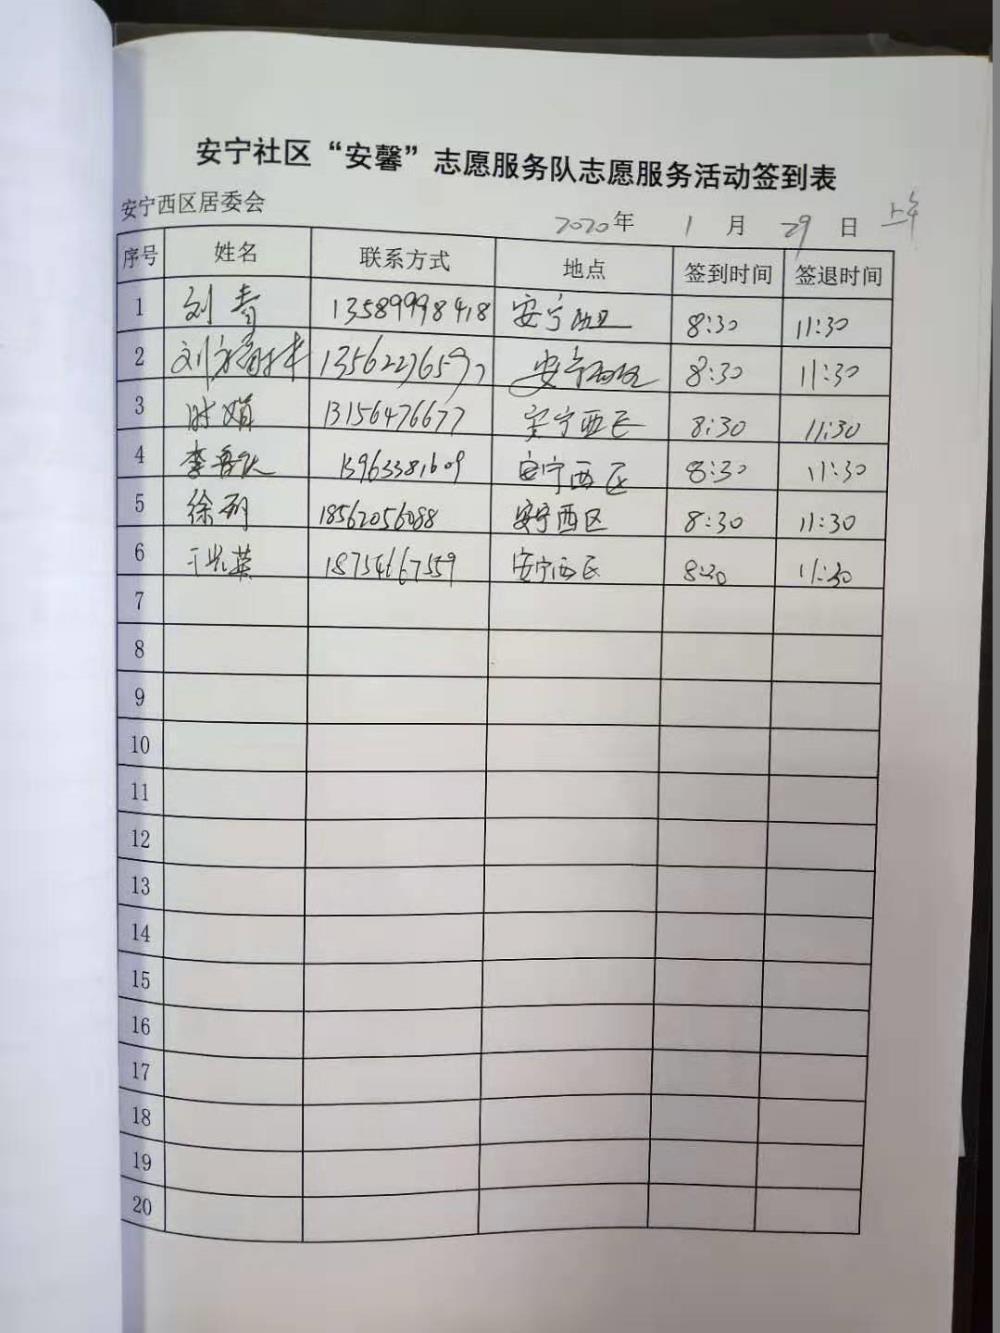 安宁社区“安馨”志愿服务队志愿服务活动签到表
安宁西区居委会 2020年 1月 29日 上午
序号 姓名 联系方式 地点 签到时间 签退时间
1 刘青 13589998418 安宁西区 8:30 11:30
2 刘 安宁西区 8:30 11:30
3 时娟 13156476677 安宁西区 8:30 11:30
4 李 13963381609 安宁西区 8:30 11:30
5 徐 18562056088 安宁西区 8:30 11:30
6 英 18754667559 安宁西区 8:30 11:30
7
8
9
10
11
12
13
14
15
16
17
18
19
20